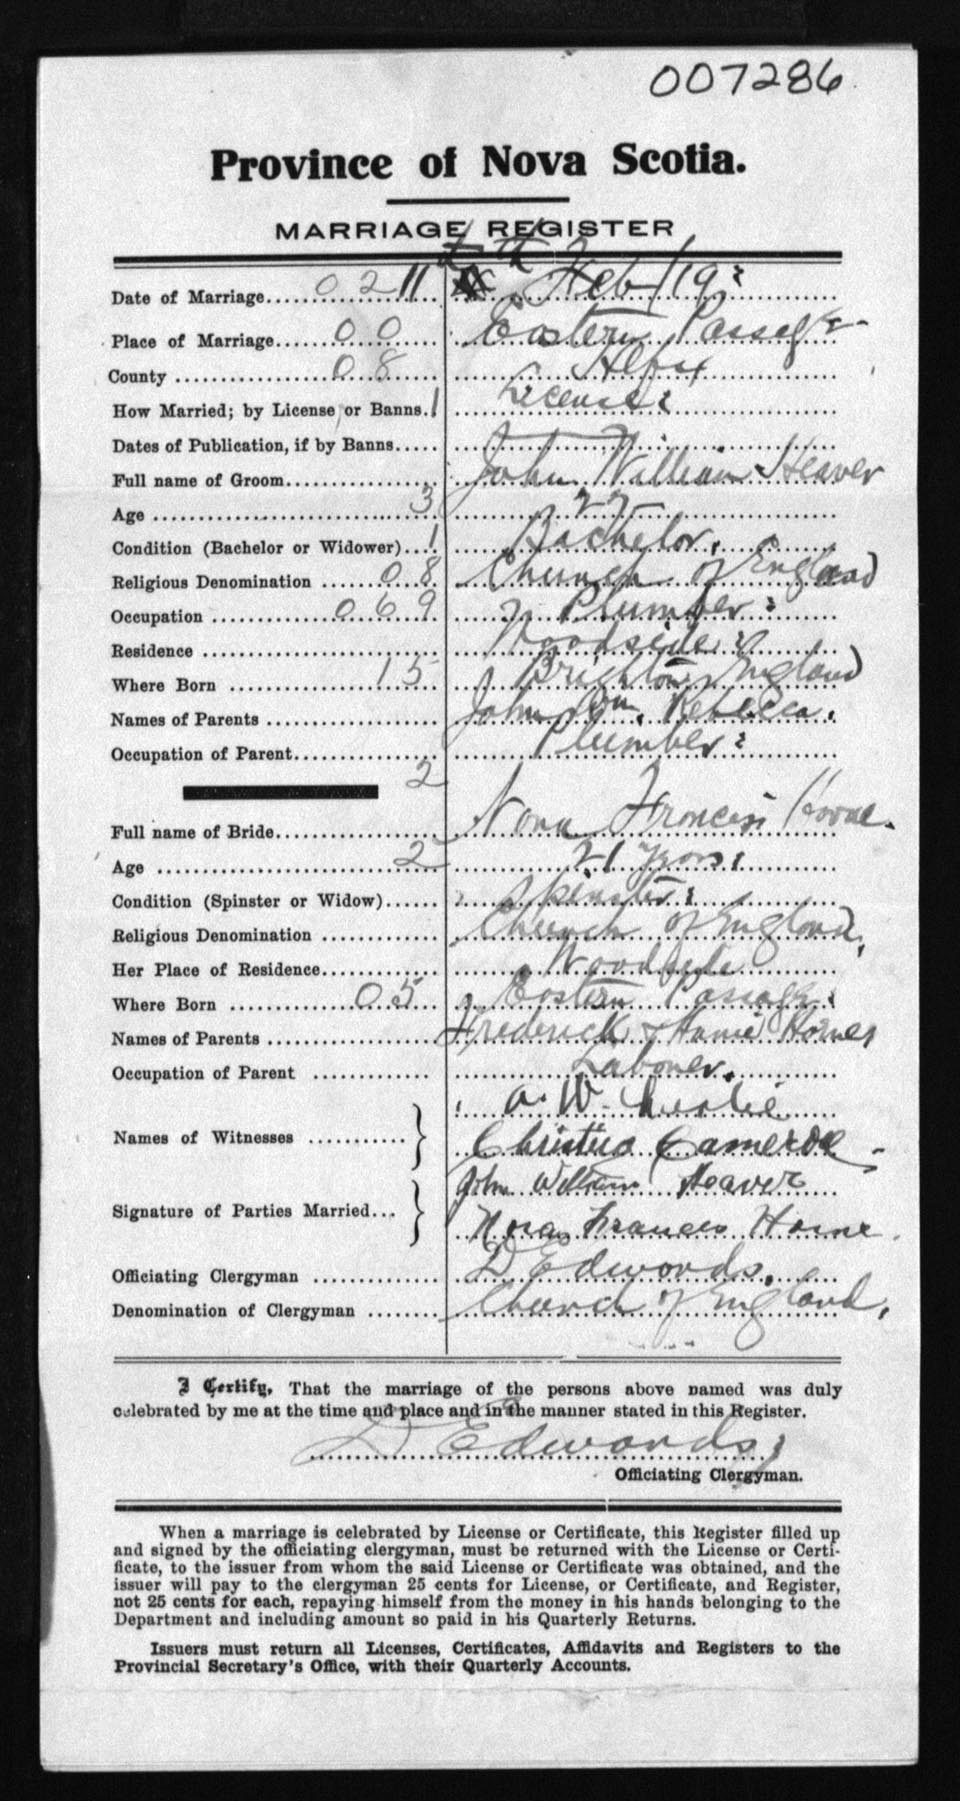 007286
Province of Nova Scotia.
MARRIAGE REGISTER
Date of Marriage 02 11 th Feb/19
Place of Marriage 00 Eastern Passage
County 08 Hlfx
How Married; by License or Banns. 1 License
Dates of Publication, if by Banns
Full name of Groom John William Heaver
Age 3 22
Condition (Bachelor or Widower) 1 Bachelor.
Religious Denomination 08 Church of England
Occupation 069 Plumber
Residence Woodside
Where Born 15 Brighton England
Names of Parents John Wm. Rebecca.
Occupation of Parent Plumber
2
Full name of Bride Nora Francis Horne.
Age 2 21 years
Condition (Spinster or Widow) Spinster
Religious Denomination Church of England,
Her Place of Residence Woodside
Where Born 05 Eastern Passage
Names of Parents Frederick & Annie Horne
Occupation of Parent Laborer.
A. W. Leslie
Names of Witnesses Christina Cameron
John William Heaver
Signature of Parties Married
Nora Frances Horne.
Officiating Clergyman D Edwards.
Denomination of Clergyman Church of England,
I Certify, That the marriage of the persons above named was duly
celebrated by me at the time and place and in the manner stated in this Register.
D Edwards
Officiating Clergyman.
When a marriage is celebrated by License or Certificate, this Register filled up
and signed by the officiating clergyman, must be returned with the License or Certi-
ficate, to the issuer from whom the said License or Certificate was obtained, and the
issuer will pay to the clergyman 25 cents for License, or Certificate, and Register,
not 25 cents for each, repaying himself from the money in his hands belonging to the
Department and including amount so paid in his Quarterly Returns.
Issuers must return all Licenses, Certificates, Affidavits and Registers to the
Provincial Secretary's Office, with their Quarterly Accounts.